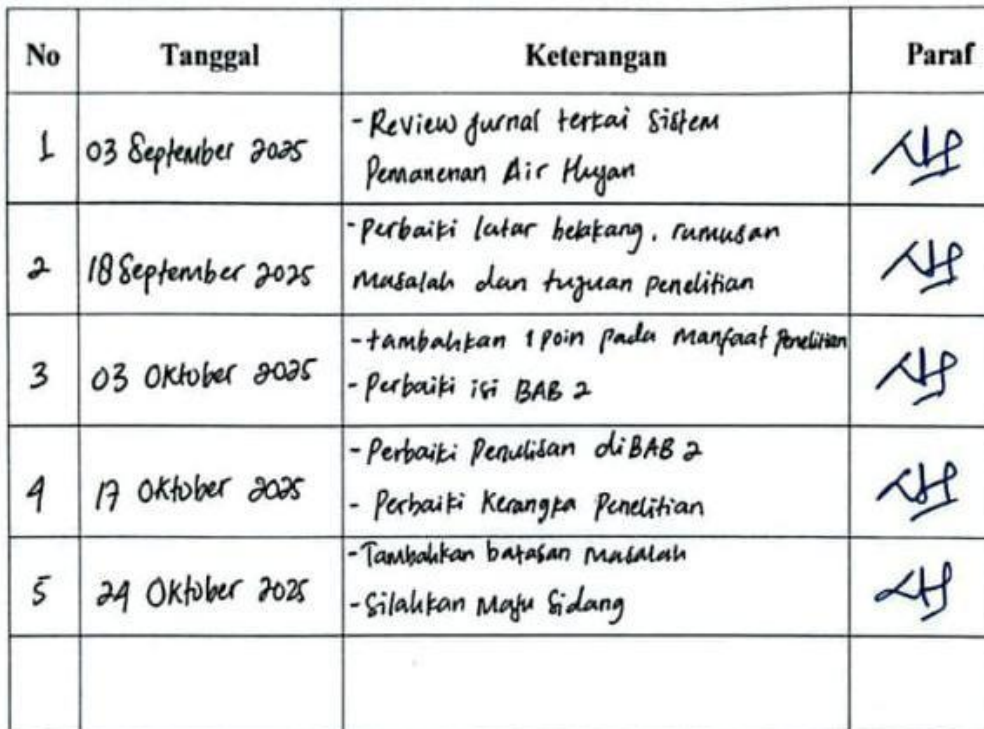 No Tanggal Keterangan Paraf
1 03 September 2025 - Review jurnal terkai Sistem
Pemanenan Air Hujan
2 18 September 2025 - Perbaiki latar belakang, rumusan
masalah dan tujuan penelitian
3 03 Oktober 2025 - tambahkan 1 poin pada manfaat penelitian
- Perbaiki isi BAB 2
4 17 Oktober 2025 - Perbaiki Penulisan di BAB 2
- Perbaiki Kerangka Penelitian
5 24 Oktober 2025 - Tambahkan batasan masalah
- Silahkan Maju Sidang